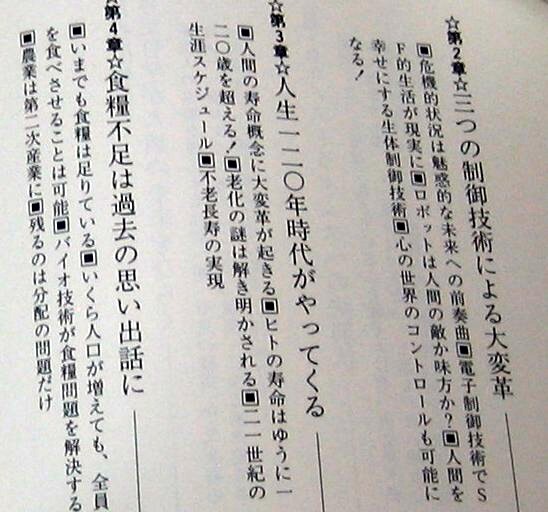 ☆第2章☆三つの制御技術による大変革
▣危機的状況は魅惑的な未来への前奏曲▣電子制御技術でS
F的生活が現実に▣ロボットは人間の敵か味方か?▣人間を
幸せにする生体制御技術▣心の世界のコントロールも可能に
なる!
☆第3章☆人生一二〇年時代がやってくる
▣人間の寿命概念に大変革が起きる▣ヒトの寿命はゆうに一
二〇歳を超える!▣老化の謎は解き明かされる▣二一世紀の
生涯スケジュール▣不老長寿の実現
☆第4章☆食糧不足は過去の思い出話に
▣いまでも食糧は足りている▣いくら人口が増えても、全員
を食べさせることは可能▣バイオ技術が食糧問題を解決する
▣農業は第二次産業に▣残るのは分配の問題だけ